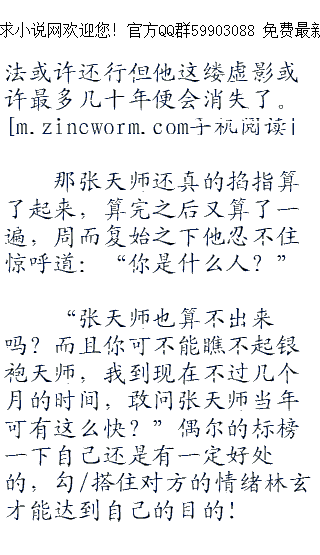 求小说网欢迎您！官方QQ群59903088 免费最新
法或许还行但他这缕虚影或
许最多几十年便会消失了。
[m.zincworm.com手机阅读
那张天师还真的掐指算
了起来，算完之后又算了一
遍，周而复始之下他忍不住
惊呼道：“你是什么人？”
“张天师也算不出来
吗？而且你可不能瞧不起银
袍天师，我到现在不过几个
月的时间，敢问张天师当年
可有这么快？”偶尔的标榜
一下自己还是有一定好处
的，勾/搭住对方的情绪林玄
才能达到自己的目的！